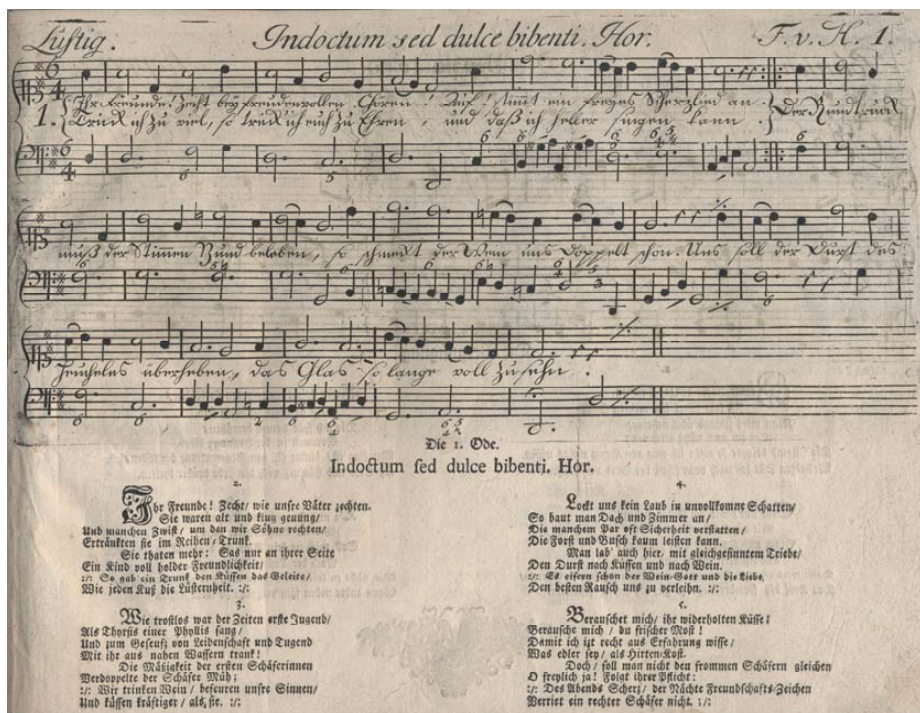 Lustig. Indoctum sed dulce bibenti. Hor. F. v. H. 1.
1. Ihr Freunde! Zecht bey freudenvollen Chören! Auf! stimmt ein freyes Scherzlied an.
Trinck ich zu viel, so trinck ich euch zu Ehren, und daß ich heller singen kann. Der Rundtrunck
muß der Stimmen Bund beleben, so schmeckt der Wein uns doppelt schon. Uns soll der Durst des
Heuchelns überheben, das Glas so lange voll zu sehn.
Die 1. Ode.
Indoctum sed dulce bibenti. Hor.
2.
Ihr Freunde! Zecht/ wie unsre Väter zechten.
Sie waren alt und klug genung/
Und manchen Zwist/ um den wir Söhne rechten/
Ertränkten sie im Reihen/Trunk.
Sie thaten mehr: Sas nur an ihrer Seite
Ein Kind voll holder Freundlichkeit/
:/: So gab ein Trunk den Küssen das Geleite/
Wie jeden Kuß die Lüsternheit. :/:
3.
Wie trostlos war der Zeiten erste Jugend/
Als Thyrsis einer Phyllis sang/
Und zum Geseufz von Leidenschaft und Tugend
Mit ihr aus nahen Wassern trank!
Die Mäßigkeit der ersten Schäferinnen
Verdoppelte der Schäfer Müh;
:/: Wir trinken Wein/ befeuren unsre Sinnen/
Und küssen kräftiger/ als sie. :/:
4.
Lockt uns kein Laub in unvollkommne Schatten/
So baut man Dach und Zimmer an/
Die manchem Par oft Sicherheit verstatten/
Die Forst und Busch kaum leisten kann.
Man lab' auch hier/ mit gleichgesinntem Triebe/
Den Durst nach Küssen und nach Wein.
:/: Es eifern schon der Wein-Gott und die Liebe,
Den besten Rausch uns zu verleihn. :/:
5.
Berauschet mich/ ihr widerholten Küsse!
Berausche mich/ du frischer Most!
Damit ich izt recht aus Erfahrung wisse/
Was edler sey/ als Hirten-Kost.
Doch/ soll man nicht den frommen Schäfern gleichen
O freylich ja! Folgt ihrer Pflicht:
:/: Des Abends Scherz/ der Nächte Freundschafts-Zeichen
Verriet ein rechter Schäfer nicht. :/: